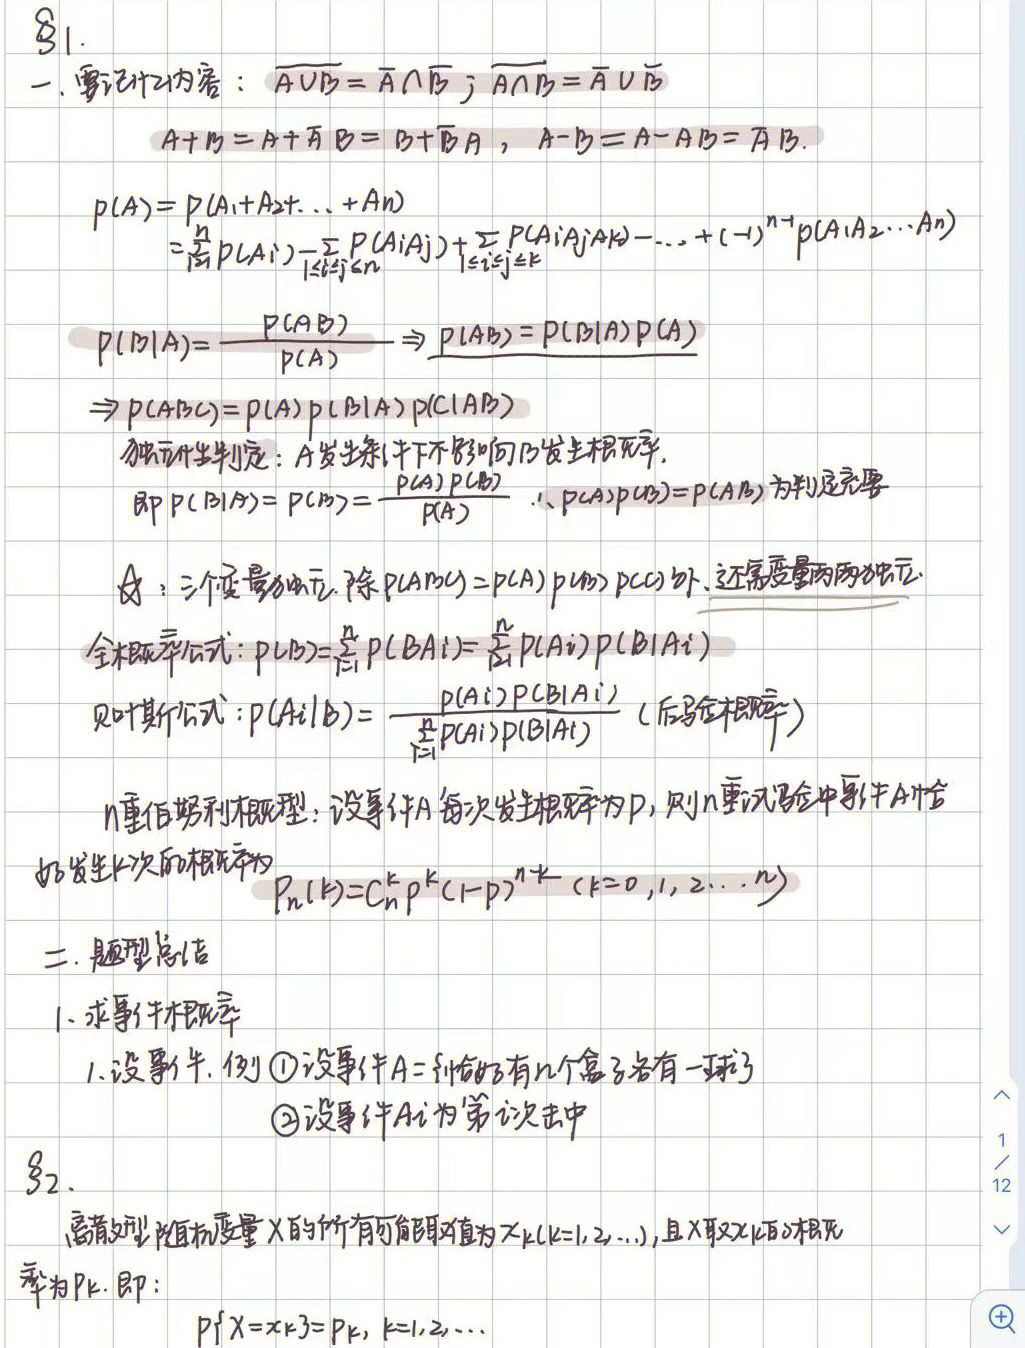 §1.
一、需记忆内容： \overline{A∪B} = \overline{A}∩\overline{B} ； \overline{A∩B} = \overline{A}∪\overline{B}
A+B = A+\overline{A}B = B+\overline{B}A , A-B = A-AB = \overline{A}B.
P(A) = P(A₁+A₂+...+An)
= \sum_{i=1}^{n} P(Ai) - \sum_{1≤i≤j≤n} P(AiAj) + \sum_{1≤i≤j≤k} P(AiAjAk) - ... + (-1)^{n-1} P(A₁A₂...An)
P(B|A) = \frac{P(AB)}{P(A)} ⇒ P(AB) = P(B|A)P(A)
⇒ P(ABC) = P(A)P(B|A)P(C|AB)
独立性判定：A发生条件下不影响B发生概率.
即 P(B|A) = P(B) = \frac{P(A)P(B)}{P(A)} ∴ P(A)P(B) = P(AB) 为判定充要
☆：三个变量独立.除P(ABC) = P(A)P(B)P(C)外、还需变量两两独立.
全概率公式：P(B) = \sum_{i=1}^{n} P(BAi) = \sum_{i=1}^{n} P(Ai)P(B|Ai)
贝叶斯公式：P(Ai|B) = \frac{P(Ai)P(B|Ai)}{\sum_{i=1}^{n} P(Ai)P(B|Ai)} (后写全概率)
n重伯努利概型：设事件A每次发生概率为P, 则n重试验中事件A恰
好发生k次的概率为
Pₙ(k) = Cₙᵏ pᵏ (1-p)ⁿ⁻ᵏ (k=0,1,2...n)
二.题型总结
1、求事件概率
1.设事件.例①设事件A={恰好有n个盒子各有一球}
②设事件Ai为第i次击中
§2.
离散型随机变量X的所有可能取值为xₖ(k=1,2,...),且X取xₖ的概
率为Pₖ.即：
P{X=xₖ}=Pₖ, k=1,2,...
1
/
12